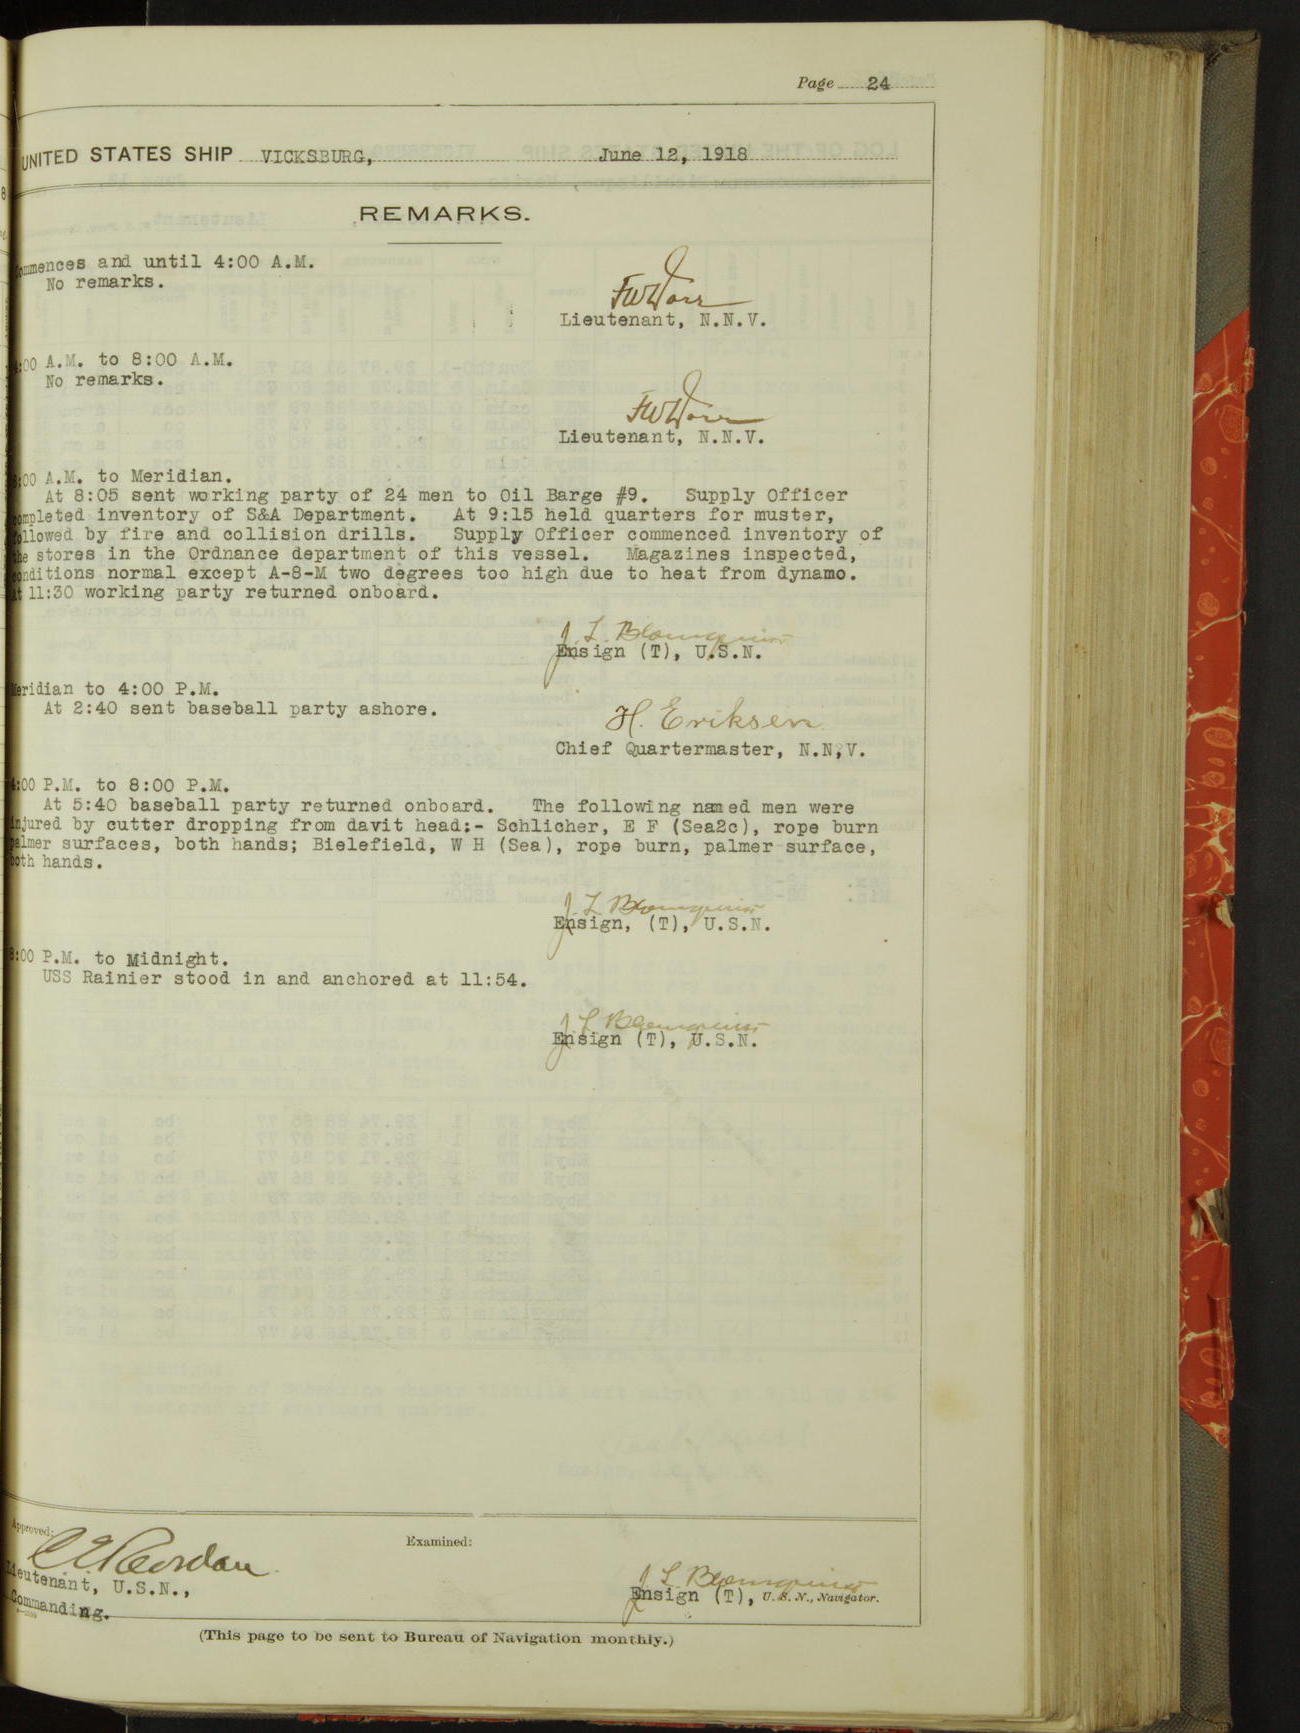 Page 24
UNITED STATES SHIP VICKSBURG, June 12, 1918
REMARKS.
Commences and until 4:00 A.M.
No remarks.
Lieutenant, N.N.V.
4:00 A.M. to 8:00 A.M.
No remarks.
Lieutenant, N.N.V.
8:00 A.M. to Meridian.
At 8:05 sent working party of 24 men to Oil Barge #9. Supply Officer
completed inventory of S&A Department. At 9:15 held quarters for muster,
followed by fire and collision drills. Supply Officer commenced inventory of
the stores in the Ordnance department of this vessel. Magazines inspected,
conditions normal except A-8-M two degrees too high due to heat from dynamo.
At 11:30 working party returned onboard.
J. L. Blomquist
Ensign (T), U.S.N.
Meridian to 4:00 P.M.
At 2:40 sent baseball party ashore.
H. Eriksen
Chief Quartermaster, N.N,V.
4:00 P.M. to 8:00 P.M.
At 5:40 baseball party returned onboard. The following named men were
injured by cutter dropping from davit head:- Schlicher, E F (Sea2c), rope burn
palmer surfaces, both hands; Bielefield, W H (Sea), rope burn, palmer surface,
both hands.
J. L Blomquist
Ensign, (T), U.S.N.
8:00 P.M. to Midnight.
USS Rainier stood in and anchored at 11:54.
J. L Blomquist
Ensign (T), U.S.N.
Approved:
Examined:
Lieutenant, U.S.N.,
Commanding.
J L Blomquist
Ensign (T), U. S. N., Navigator.
(This page to be sent to Bureau of Navigation monthly.)